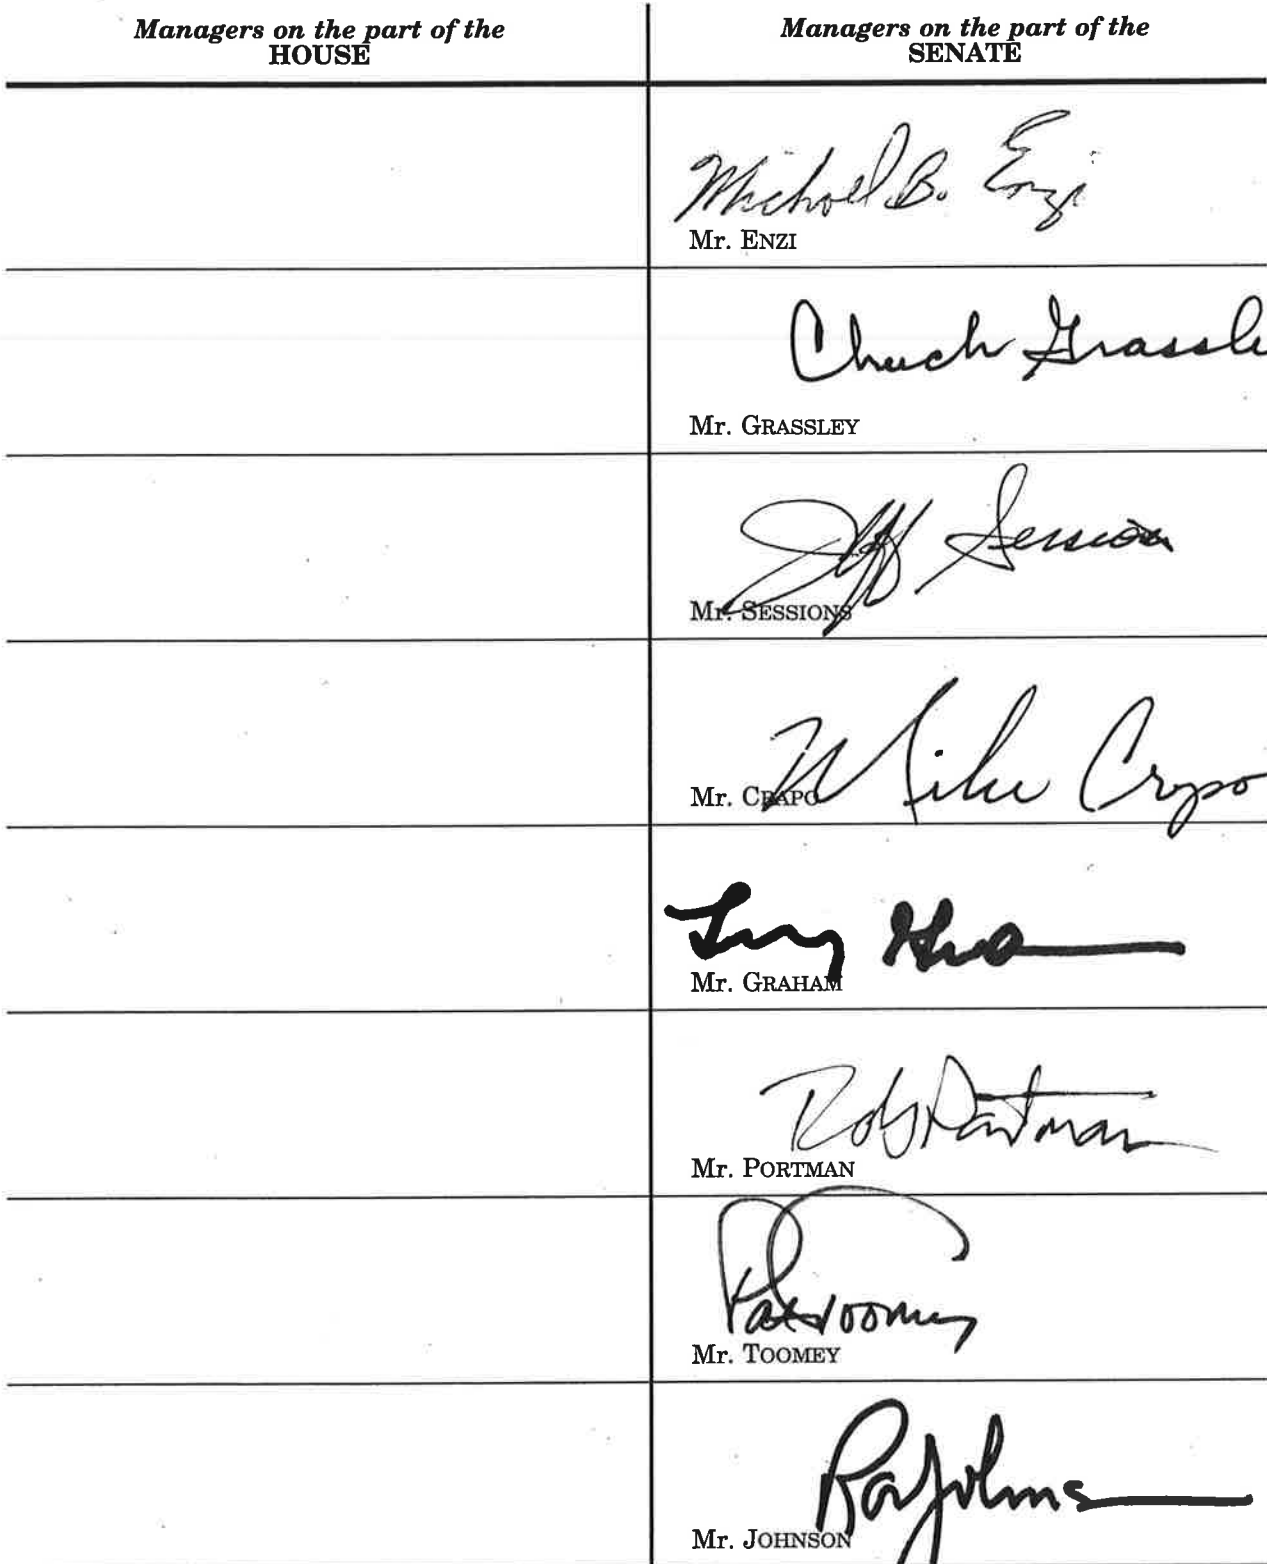 Managers on the part of the
HOUSE
Managers on the part of the
SENATE
Michael B. Enzi
Mr. ENZI
Chuck Grassle
Mr. GRASSLEY
Jeff Sessions
Mr. SESSIONS
Mike Crapo
Mr. CRAPO
Mr. GRAHAM
Rob Portman
Mr. PORTMAN
Pat Toomey
Mr. TOOMEY
Ron Johnson
Mr. JOHNSON